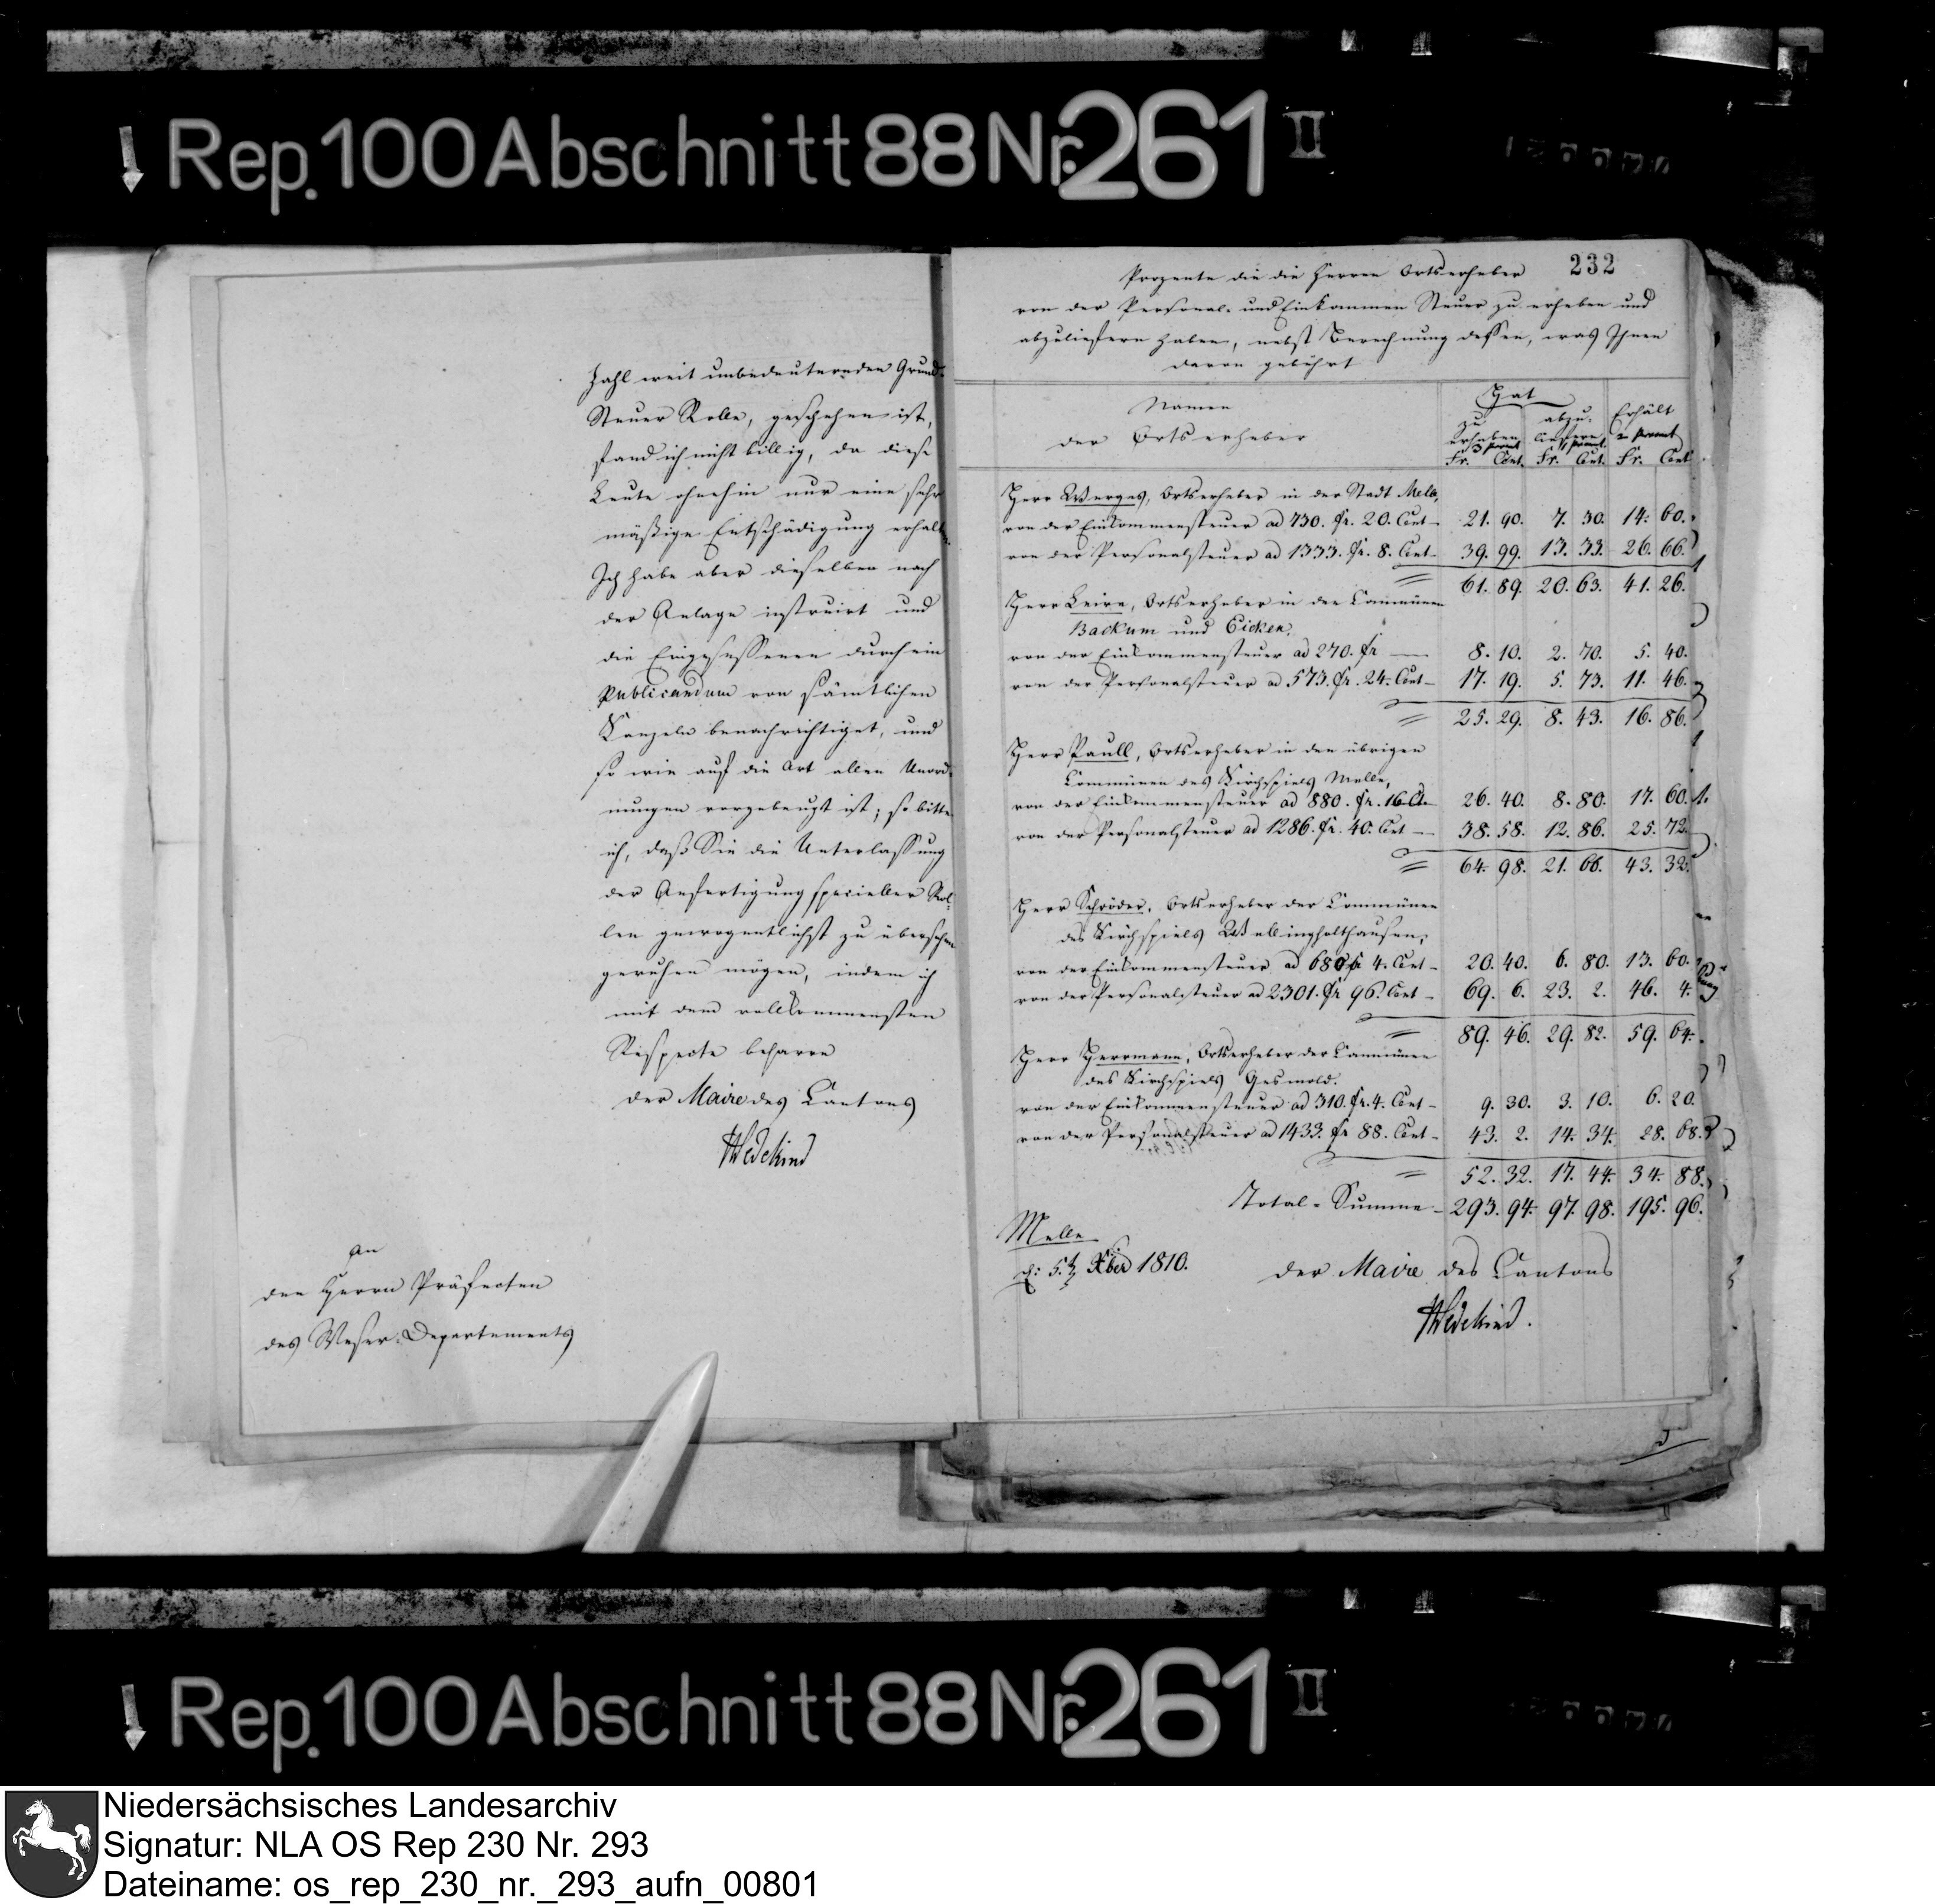 Rep. 100 Abschnitt 88 Nr. 261 II
Zahl weit unbedeuternden Grund-
Steuer Rolle, geschehen ist,
fand ich nicht billig, da diese
Leute ohnehin nur eine sehr
mäßige Entschädigung erhalten.
Ich habe aber dieselben nach
der Anlage instruirt und
die Eingesessenen durch ein
Publicandum von sämtlichen
Kanzeln benachrichtiget, und
so wie auf die Art allen Unord-
nungen vorgebeugt ist; so bitte
ich, daß Sie die Unterlassung
der Anfertigung specieller Rol-
len gewogentlichst zu übersehen
geruhen mögen, indem ich
mit dem vollkommensten
Respecte beharre
der Maire des Cantons
Wedekind
An
den Herrn Präfecten
des Weser-Departements
232
Prozente die die Herren Ortserheber
von der Personal- und Einkommen Steuer zu erheben und
abzuliefern haben, nebst Berechnung dessen, was Ihnen
davon gebührt
Namen
der Ortserheber
Hat
zu erheben 3 procent
abzu-liefern 1 procent.
Erhält 2 procent
Fr. Cent. Fr. Cent. Fr. Cent
Herr Werges, Ortserheber in der Stadt Melle,
von der Einkommensteuer ad 730. Fr. 20. Cent - 21. 90. 7. 30. 14. 60.
von der Personalsteuer ad 1333. Fr. 8. Cent - 39. 99. 13. 33. 26. 66.
= 61. 89. 20. 63. 41. 26.
Herr Leire, Ortserheber in den Communen
Backum und Eicken,
von der Einkommensteuer ad 270. Fr — 8. 10. 2. 70. 5. 40.
von der Personalsteuer ad 573. Fr. 24. Cent - 17. 19. 5. 73. 11. 46.
= 25. 29. 8. 43. 16. 86.
Herr Paull, Ortserheber in den übrigen
Communen des Kirchspiels Melle,
von der Einkommensteuer ad 880. Fr. 16 Ct. - 26. 40. 8. 80. 17. 60.
von der Personalsteuer ad 1286. Fr. 40. Cent - 38. 58. 12. 86. 25. 72.
= 64. 98. 21. 66. 43. 32.
Herr Schröder, Ortserheber der Communen
des Kirchspiels Wellingholthausen,
von der Einkommensteuer ad 680 Fr 4. Cent - 20. 40. 6. 80. 13. 60.
von der Personalsteuer ad 2301. Fr 96. Cent - 69. 6. 23. 2. 46. 4.
= 89. 46. 29. 82. 59. 64.
Herr Herrmann, Ortserheber der Communen
des Kirchspiels Gesmold.
von der Einkommensteuer ad 310. Fr. 4. Cent - 9. 30. 3. 10. 6. 20.
von der Personalsteuer ad 1433. Fr 88. Cent - 43. 2. 14. 34. 28. 68.
= 52. 32. 17. 44. 34. 88.
Total-Summe - 293. 94. 97. 98. 195. 96.
Melle
d: 5.t Xber 1810.
der Maire des Cantons
Wedekind.
Rep. 100 Abschnitt 88 Nr. 261 II
Niedersächsisches Landesarchiv
Signatur: NLA OS Rep 230 Nr. 293
Dateiname: os_rep_230_nr._293_aufn_00801